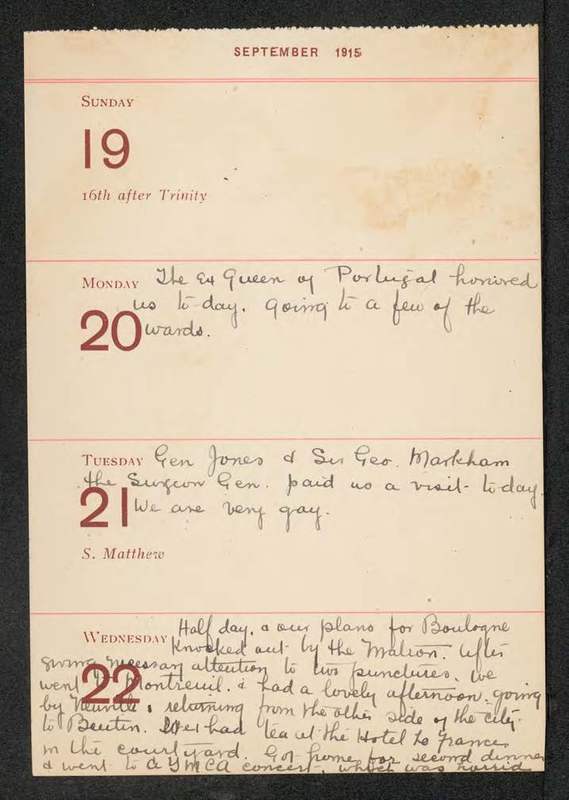 SEPTEMBER 1915
SUNDAY
19
16th after Trinity
MONDAY The Ex Queen of Portugal honored
us to-day. going to a few of the
20 wards.
TUESDAY Gen Jones & Sir Geo. Markham
the Surgeon Gen. paid us a visit to-day.
21 We are very gay.
S. Matthew
WEDNESDAY Half day, & our plans for Boulogne
knocked out by the Matron. After
giving necessary attention to two punctures, we
22 went to Montreuil. & had a lovely afternoon, going
by Neuville, returning from the other side of the city
to Beutin. had tea at the Hotel de France
in the courtyard. Got home for second dinner
& went to a YMCA concert, which was horrid